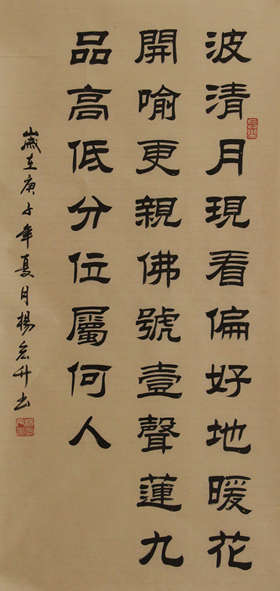 波清月現看偏好地暖花
開喻更親佛號壹聲蓮九
品高低分位屬何人
歲在庚子年夏月楊